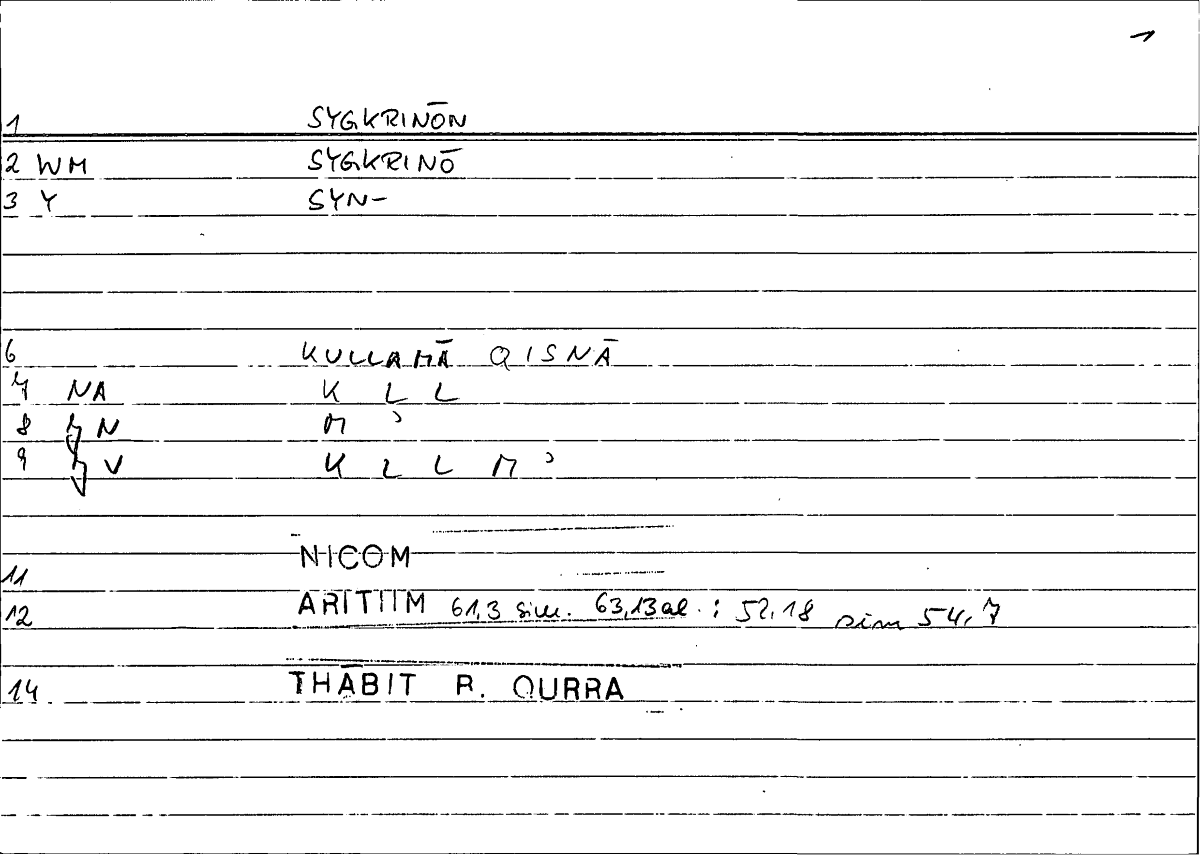 1
1 SYGKRINŌN
2 WM SYGKRINŌ
3 Y SYN-
6 KULLAMĀ QISNĀ
7 NA K L L
8 N M ʾ
9 V K L L M ʾ
NICOM
11
12 ARITIIM 61,3 sim. 63,13 al. ; 52,18 sim 54,7
14 THĀBIT R. QURRA